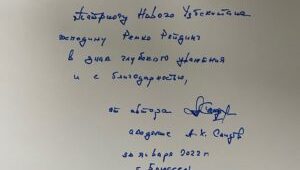 Патриоту Нового Узбекистана
господину Ренко Рейдинг
в знак глубокого уважения
и с благодарностью,
от автора
академик А. Х. Саидов
30 января 2022 г
г. Брюссель